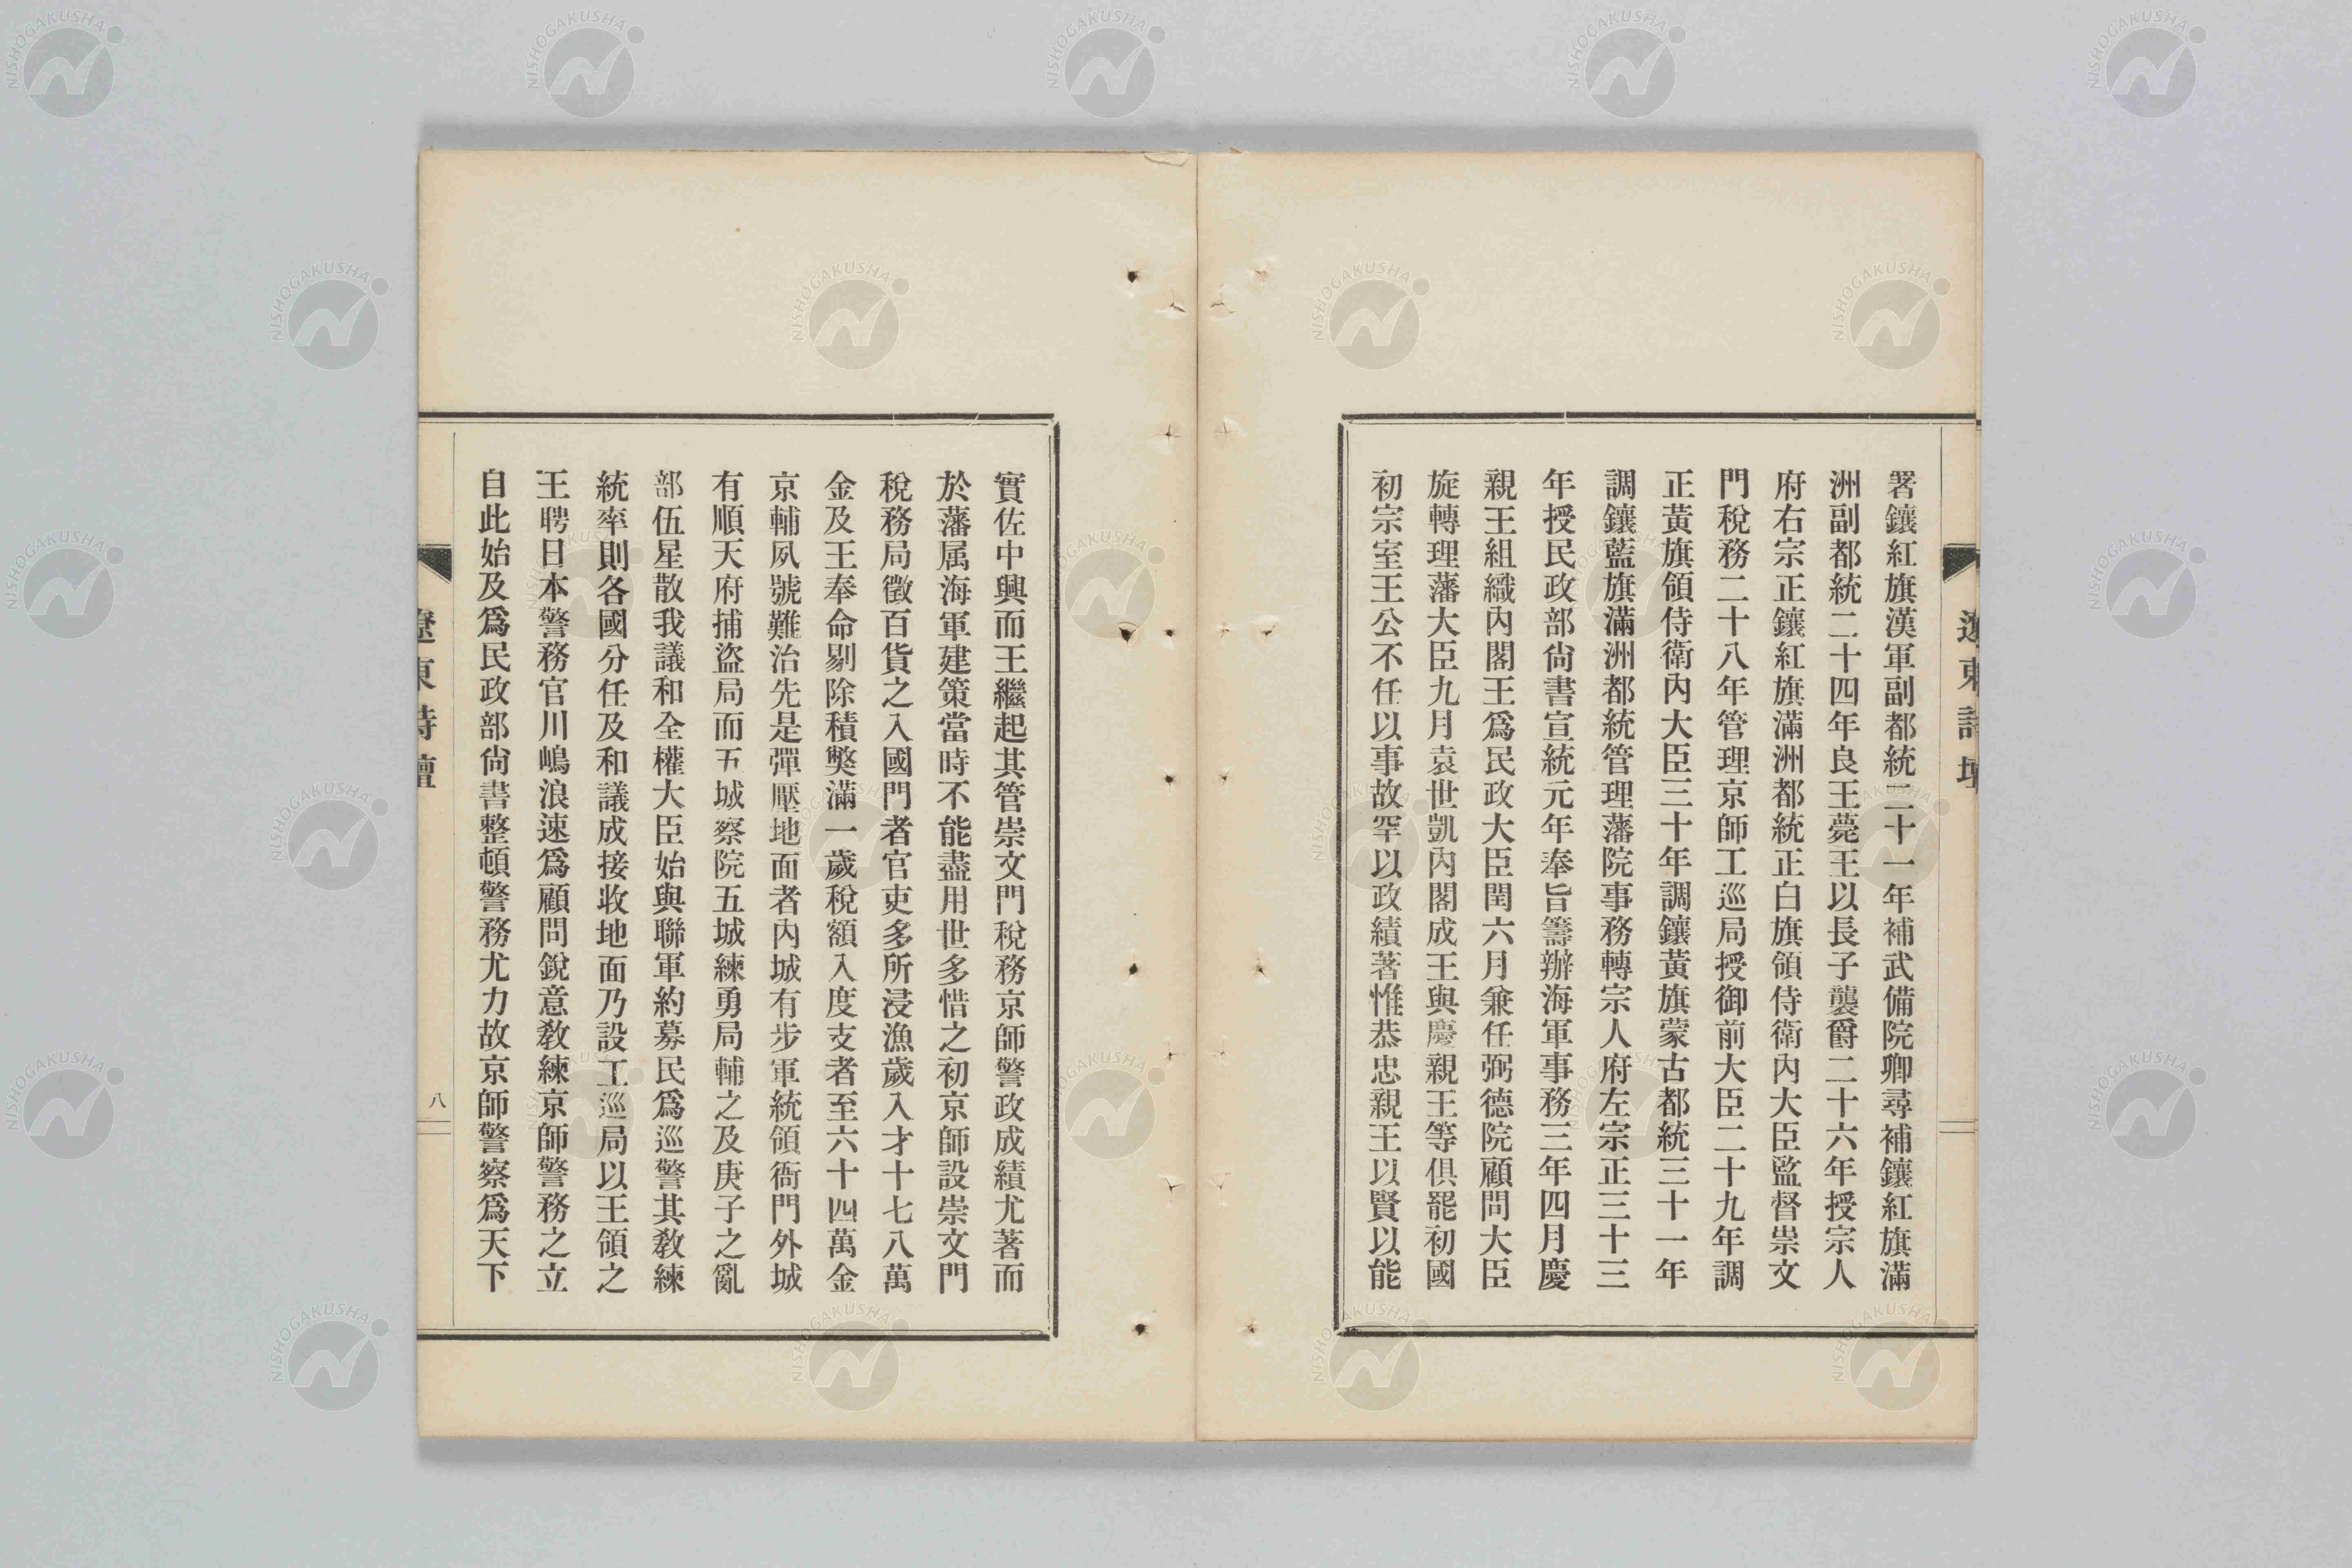 署鑲紅旗漢軍副都統二十一年補武備院卿尋補鑲紅旗滿
洲副都統二十四年良王薨王以長子襲爵二十六年授宗人
府右宗正鑲紅旗滿洲都統正白旗領侍衛內大臣監督崇文
門稅務二十八年管理京師工巡局授御前大臣二十九年調
正黃旗領侍衛內大臣三十年調鑲黃旗蒙古都統三十一年
調鑲藍旗滿洲都統管理藩院事務轉宗人府左宗正三十三
年授民政部尙書宣統元年奉旨籌辦海軍事務三年四月慶
親王組織內閣王爲民政大臣閏六月兼任弼德院顧問大臣
旋轉理藩大臣九月袁世凱內閣成王與慶親王等俱罷初國
初宗室王公不任以事故罕以政績著惟恭忠親王以賢以能
實佐中興而王繼起其管崇文門稅務京師警政成績尤著而
於藩属海軍建策當時不能盡用世多惜之初京師設崇文門
稅務局徵百貨之入國門者官吏多所浸漁歲入才十七八萬
金及王奉命剔除積獘滿一歲稅額入度支者至六十四萬金
京輔夙號難治先是彈壓地面者內城有步軍統領衙門外城
有順天府捕盜局而五城察院五城練勇局輔之及庚子之亂
部伍星散我議和全權大臣始與聯軍約募民爲巡警其敎練
統率則各國分任及和議成接收地面乃設工巡局以王領之
王聘日本警務官川嶋浪速爲顧問銳意敎練京師警務之立
自此始及爲民政部尙書整頓警務尤力故京師警察爲天下
遼東詩壇
八